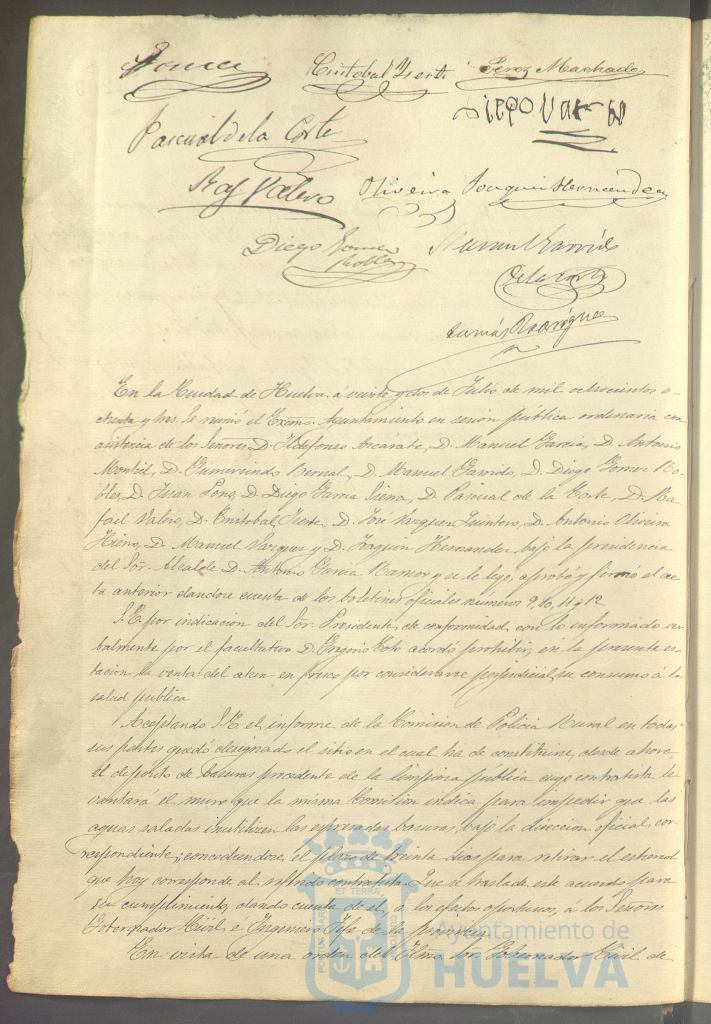 Gomez Cristobal Perez Machado
Diego
Pascual de la Corte
Raf. Valero Oliveira Joaquin Hernandez
Diego Gomez Robles Manuel Garrido
De la Corte
Tomás Rodriguez
En la Ciudad de Huelva, á veinte y dos de Julio de mil ochocientos o-
chenta y tres se reunió el Excmo. Ayuntamiento en sesion pública ordinaria con
asistencia de los Señores, D. Ildefonso Azcárate, D. Manuel Garcia, D. Antonio
Montiel, D. Gumersindo Bernal, D. Manuel Garrido, D. Diego Gomez Ro-
bles, D. Juan Pons, D. Diego Garcia Viera, D. Pascual de la Corte, D. Ra-
fael Valero, D. Cristobal, D. José Vazquez Quintero, D. Antonio Oliveira
D. Manuel Vazquez y D. Joaquin Hernandez bajo la presidencia
del Sor. Alcalde D. Antonio Garcia Ramos y se le leyo, aprobó y firmó el ac-
ta anterior dandose cuenta de los boletines oficiales números 9, 10, 11 y 12
S.E. por indicacion del Sor. Presidente, de conformidad con lo informado ver-
balmente por el facultativo D. Gregorio acordó prohibir, en la presente es-
tacion la venta del atun en fresco por considerarse perjudicial su consumo á la
salud publica
Aceptando S.E. el informe de la Comision de Policia Rural en todas
sus partes quedó designado el sitio en el cual ha de constituirse, desde ahora
el deposito de basuras procedente de la limpieza pública cuyo contratista le-
vantará el muro que la misma Comision indica para impedir que las
aguas saladas inutilizen las espresadas basuras, bajo la direccion oficial, cor-
respondiente; concediendose, el plazo de treinta dias para retirar el estiercol
que hoy corresponde al referido contratista. Que se traslade este acuerdo para
su cumplimiento, dando cuenta de el, a los efectos oportunos, á los Señores
Gobernador Civil e Ingeniero Jefe de la provincia
En vista de una orden del Iltmo. Sor. Gobernador Civil de
Ayuntamiento de
HUELVA